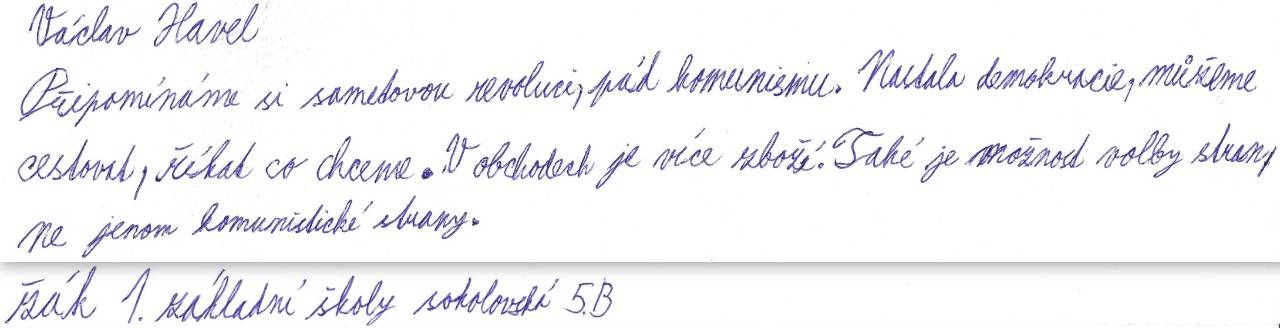 Václav Havel
Připomínáme si sametovou revoluci, pád komunismu. Nastala demokracie, můžeme
cestovat, říkat co chceme. V obchodech je více zboží. Také je možnost volby stran,
ne jenom komunistické strany.
žák 1. základní školy sokolovská 5.B